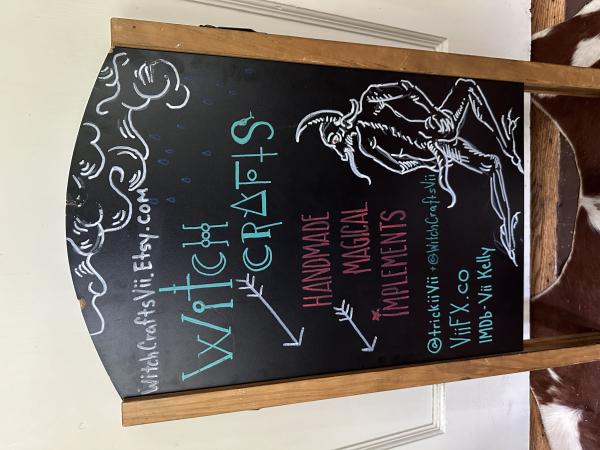 WitchCraftsVii.Etsy.com
WitcH
CRAFTS
HANDMADE
MAGICAL
IMPLEMENTS
@trickiiVii + @WitchCraftsVii
ViiFX.co
IMDb-Vii Kelly